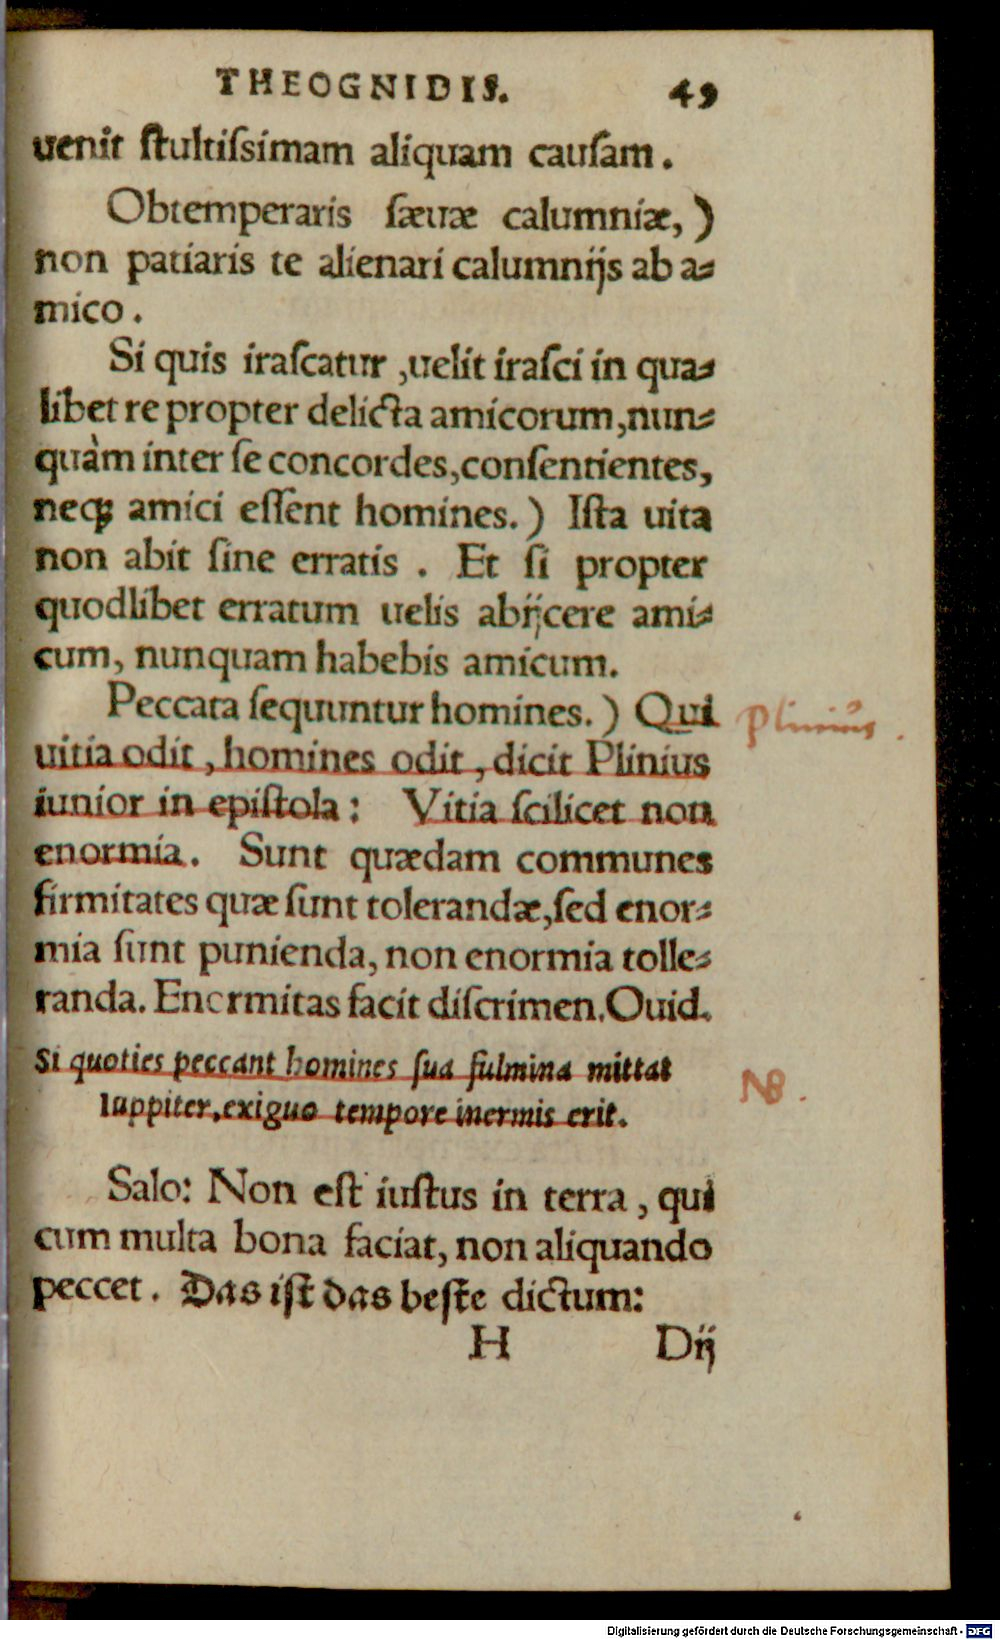 THEOGNIDIS. 49
uenit ſtultiſsimam aliquam cauſam.
Obtemperaris ſæuæ calumniæ,)
non patiaris te alienari calumnijs ab a⸗
mico.
Si quis iraſcatur ,uelit iraſci in qua⸗
libet re propter delicta amicorum,nun⸗
quàm inter ſe concordes,conſentientes,
neqꝫ amici eſſent homines.) Iſta uita
non abit ſine erratis . Et ſi propter
quodlibet erratum uelis abijcere ami⸗
cum, nunquam habebis amicum.
Peccata ſequuntur homines.) Qui
Plinius .
uitia odit , homines odit , dicit Plinius
iunior in epiſtola: Vitia ſcilicet non
enormia. Sunt quædam communes
firmitates quæ ſunt tolerandæ,ſed enor⸗
mia ſunt punienda, non enormia tolle⸗
randa. Enormitas facit diſcrimen. Ouid.
Si quoties peccant homines ſua fulmina mittat
Iuppiter,exiguo tempore inermis erit.
NB .
Salo: Non eſt iuſtus in terra , qui
cum multa bona faciat, non aliquando
peccet. Das iſt das beſte dictum:
H Dij
Digitalisierung gefördert durch die Deutsche Forschungsgemeinschaft - DFG